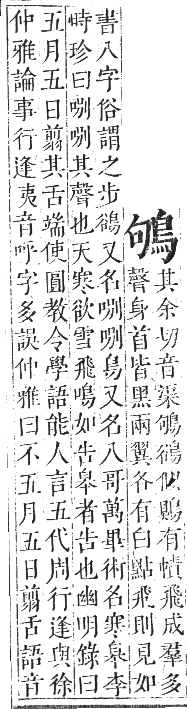 鴝
其余切音渠鴝鵒似鵙有幘飛成羣多
聲身首皆黑兩翼各有白點飛則見如
書八字俗謂之步鵒又名哵哵鳥又名八哥萬畢術名寒皋李
時珍曰哵哵其聲也天寒欲雪飛鳴如告皋者告也幽明錄曰
五月五日翦其舌端使圓教令學語能人言五代周行逢與徐
仲雅論事行逢夷音呼字多誤仲雅曰不五月五日翦舌語音